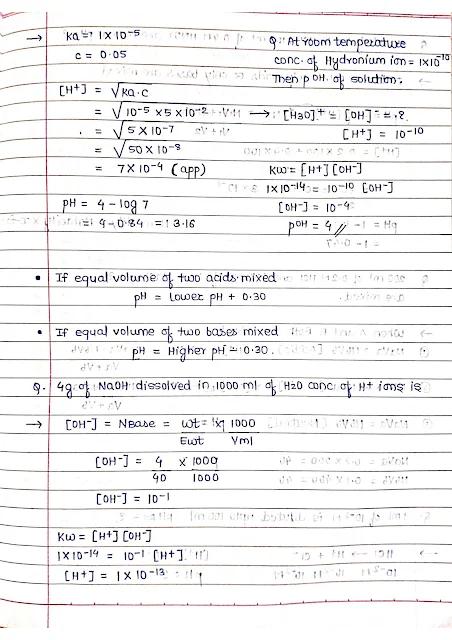 → Ka = 1 X 10⁻⁵
c = 0.05
[H+] = √Ka.c
= √10⁻⁵ X 5 X 10⁻²
= √5 X 10⁻⁷
= √50 X 10⁻⁸
= 7 X 10⁻⁴ (app)
pH = 4 - log 7
= 4 - 0.84 = 3.16
Q. At room temperature
conc. of Hydronium ion = 1X10⁻¹⁰
Then pOH of solution.
→ [H3O]+ = [OH] = ?
[H+] = 10⁻¹⁰
Kw = [H+] [OH-]
1X10⁻¹⁴ = 10⁻¹⁰ [OH-]
[OH-] = 10⁻⁴
pOH = 4 //
• If equal volume of two acids mixed
pH = Lower pH + 0.30
• If equal volume of two bases mixed
pH = Higher pH - 0.30.
Q. 4g of NaOH dissolved in 1000 ml of H2O conc of H+ ions is
→ [OH-] = NBase = wt X 1000
Ewt Vml
[OH-] = 4 X 1000
40 1000
[OH-] = 10⁻¹
Kw = [H+] [OH-]
1X10⁻¹⁴ = 10⁻¹ [H+]
[H+] = 1 X 10⁻¹³